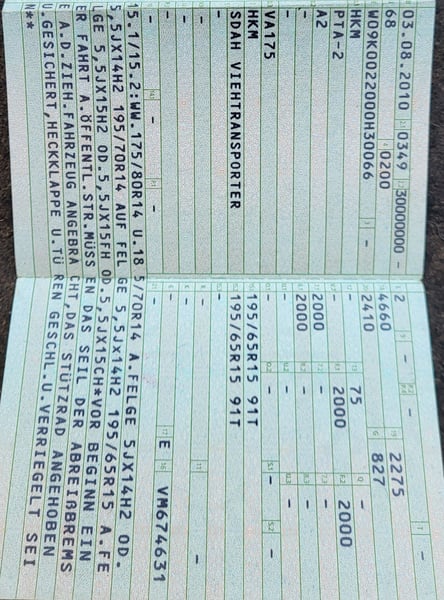 03.08.2010 0349 30000000 - 2 - - -
68 0200 4660 2275
W09K0022000H30066 - 2410 827
HKM - 75 -
PTA-2 - 2000 2000
A2 2000 - -
- 2000 - -
- - - -
VA175 - - - -
HKM 195/65R15 91T
SDAH VIEHTRANSPORTER 195/65R15 91T
- -
- - -
- - - E VM674631
15.1/15.2:WW.175/80R14 U.185/70R14 A.FELGE 5JX14H2 OD.
5,5JX14H2 195/70R14 AUF FELGE 5,5Jx14H2 195/65R15 A.FE
LGE 5,5JX15H2 OD.5,5JX15FH OD.5,5JX15CH*VOR BEGINN EIN
ER FAHRT A.ÖFFENTL.STR.MÜSSEN DAS SEIL DER ABREIßBREMS
E A.D.ZIEH.FAHRZEUG ANGEBRACHT,DAS STÜTZRAD ANGEHOBEN
U.GESICHERT,HECKKLAPPE U.TÜREN GESCHL.U.VERRIEGELT SEI
N**